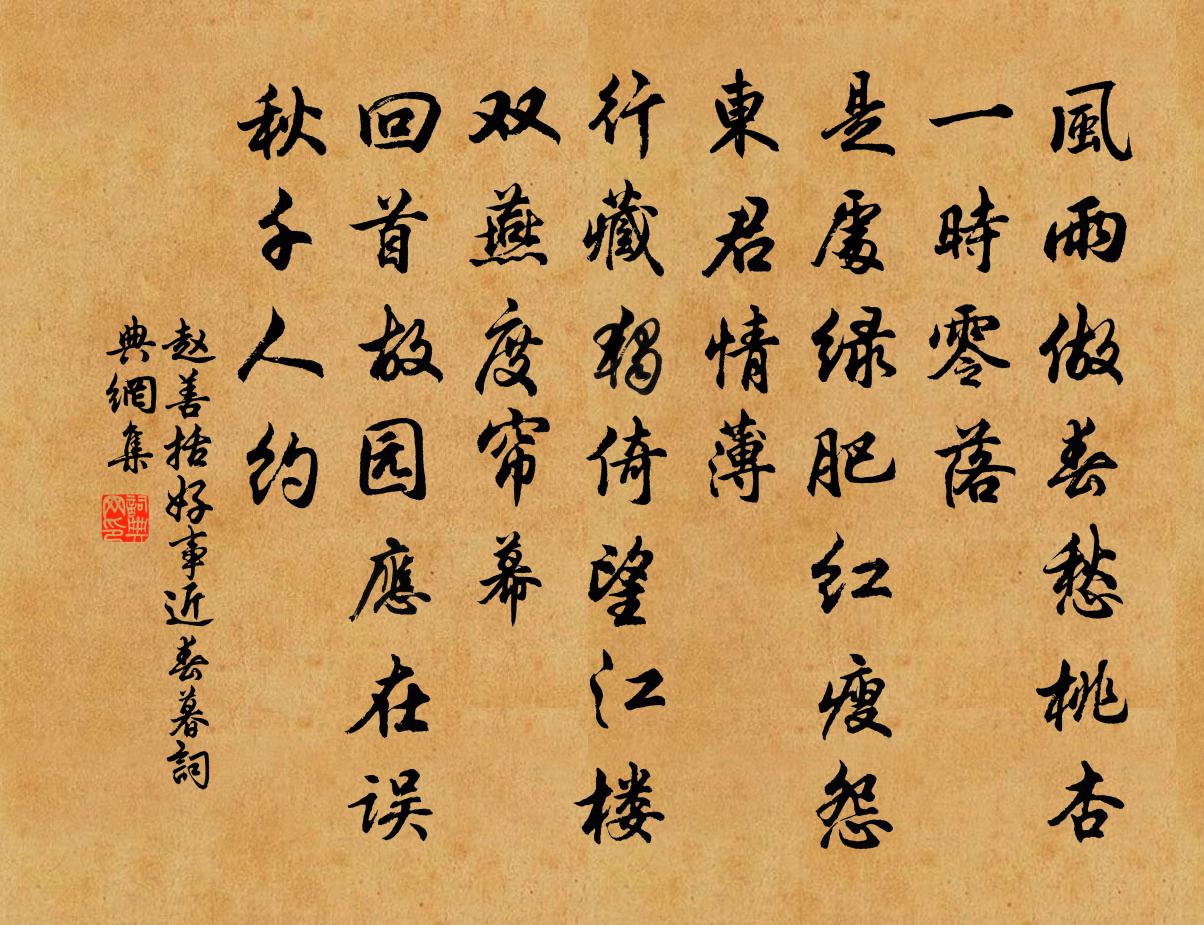 風雨做春愁桃杏
一時零落
是處绿肥红瘦怨
東君情薄
行藏獨倚望江楼
双燕度帘幕
回首故园應在误
秋千人约
赵善括好事近春暮詞
典網集
詞典網印